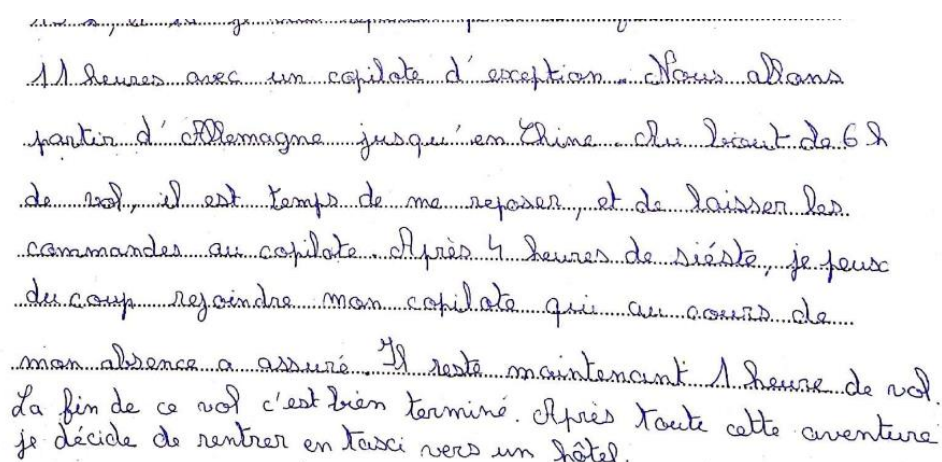 11 heures avec un copilote d'exception. Nous allons
partir d'Allemagne jusqu'en Chine. Au bout de 6 h
de vol, il est temps de me reposer, et de laisser les
commandes au copilote. Après 4 heures de siéste, je peux
du coup rejoindre mon copilote qui au cours de
mon absence a assuré. Il reste maintenant 1 heure de vol.
La fin de ce vol c'est bien terminé. Après toute cette aventure
je décide de rentrer en taxi vers un hôtel.